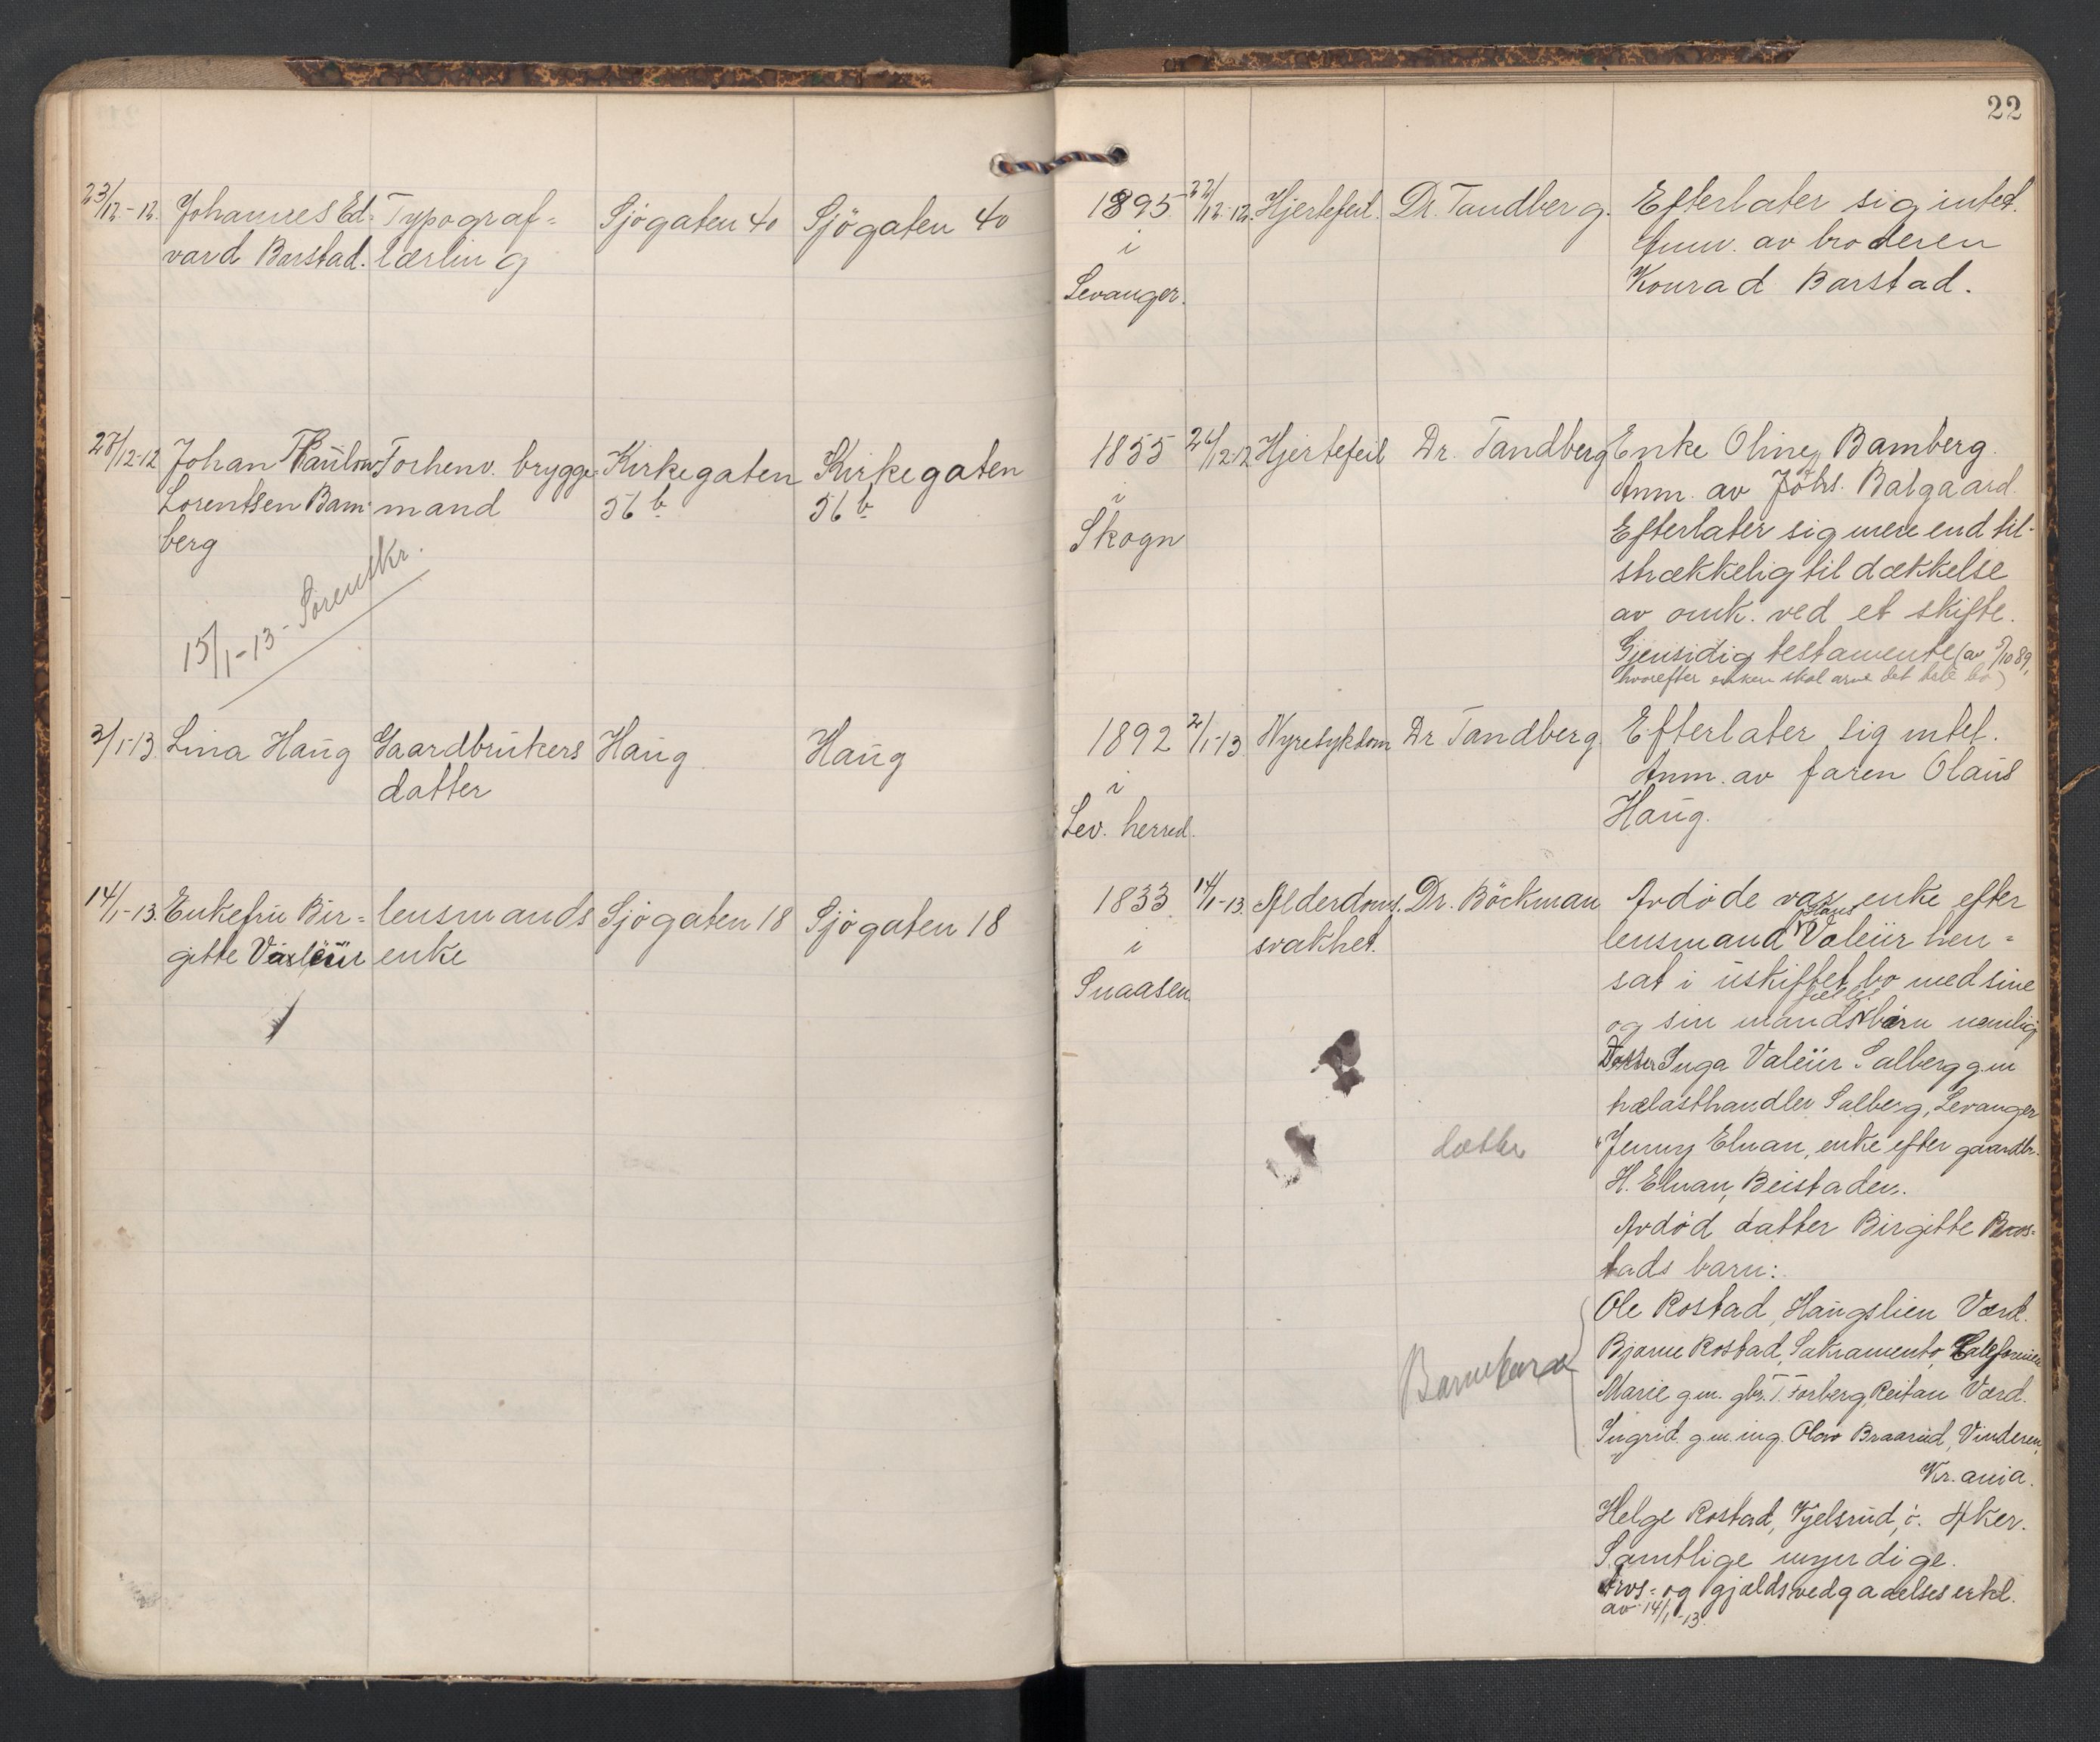 22
23/12-12. Johannes Ed- Typograf- Sjøgaten 40 Sjøgaten 40 1895 22/12-12. Hjertefeil. Dr. Tandberg. Efterlater sig intet.
vard Barstad. lærling i Anm. av broderen
Levanger. Konrad Barstad.
27/12-12 Johan Paulow Forhenv. brygge- Kirkegaten Kirkegaten 1855 26/12-12 Hjertefeil Dr. Tandberg Enke Oline Bamberg.
Lorentsen Bam- mand 56 b 56 b i Anm. av Johs. Balgaard.
berg Skogn Efterlater sig mere end til-
strækkelig til dækkelse
av omk. ved et skifte.
15/1-13- Sørenskr. Gjensidig testamente (av 5/10 89,
hvorefter enken skal arve det hele bo)
3/1-13. Lina Haug Gaardbrukers Haug Haug 1892 2/1-13 Nyresykdom Dr Tandberg. Efterlater sig intet.
datter i Anm. av faren Olaus
Lev. herred. Haug.
14/1-13. Enkefru Bir- lensmands Sjøgaten 18 Sjøgaten 18 1833 14/1-13. Alderdoms. Dr. Böckman Avdøde var enke efter
gitte Valeur enke i svakhet. lensmand Valeur hen-
Snaasen sat i uskiftet bo med sine
og sin mands fælles barn nemlig
Datter Inga Valeur Salberg g.m
trælasthandler Salberg, Levanger
datter " Jenny Elnan, enke efter gaardbr.
H. Elnan, Beistaden.
Avdød datter Birgitte Ros-
tads barn:
Ole Rostad, Haugslien Værd.
Barnebarn Bjarne Rostad, Sakramento, Californien
Marie g.m. gbr. T. Forberg, Reitan Værd.
Ingrid g.m. ing. Olav Braarud, Vinderen,
Kr.ania.
Helge Rostad, Kjelsrud, ø. Aker.
Samtlige myndige.
Arvs- og gjældsvedgaaelseserkl.
av 14/1-13.